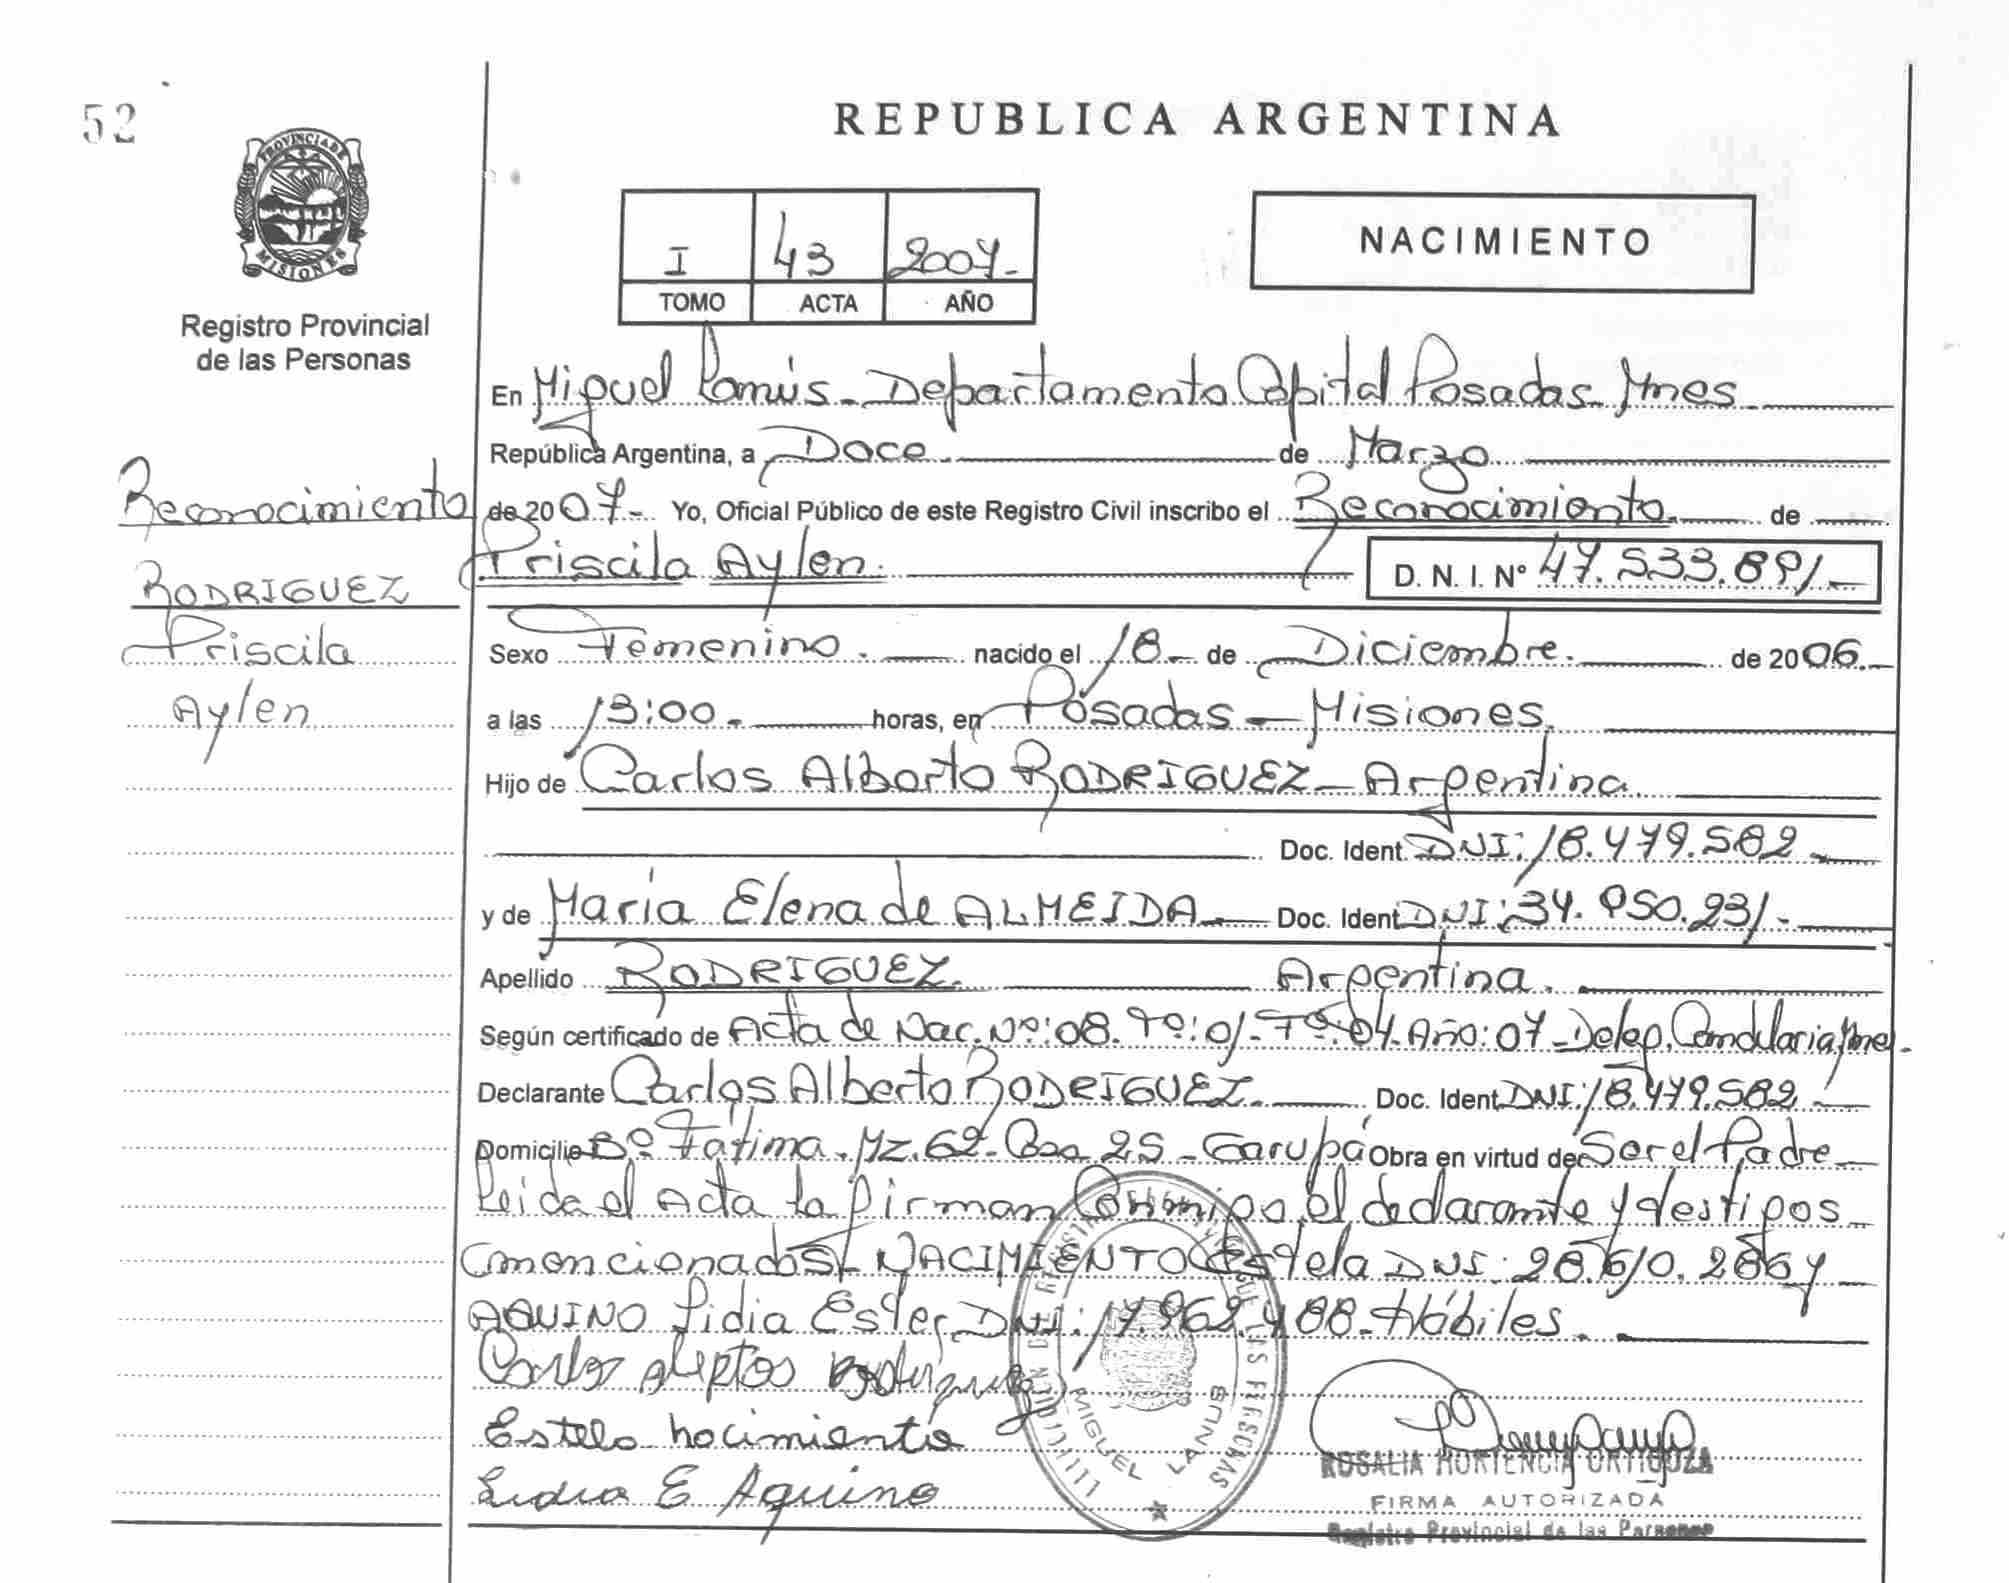 52
REPUBLICA ARGENTINA
PROVINCIA DE
MISIONES
Registro Provincial
de las Personas
I 43 2007.-
TOMO ACTA AÑO
NACIMIENTO
En Miguel Lanús - Departamento Capital Posadas Mnes
República Argentina, a Doce de Marzo
de 2007- Yo, Oficial Público de este Registro Civil inscribo el Reconocimiento de
Priscila Aylen. D. N. I. Nº 47.533.891.-
Reconocimiento
RODRIGUEZ
Priscila
Aylen
Sexo Femenino. nacido el 18 - de Diciembre. de 2006.-
a las 13:00.- horas, en Posadas - Misiones.
Hijo de Carlos Alberto RODRIGUEZ - Argentina.
Doc. Ident. DNI: 18.479.582 -
y de María Elena de ALMEIDA.- Doc. Ident. DNI: 34.950.231.-
Apellido RODRIGUEZ. Argentina.
Según certificado de Acta de Nac. Nº: 08. Tº: 01- Fº: 04. Año: 07 - Deleg. Candelaria, Mnes.
Declarante Carlos Alberto RODRIGUEZ. Doc. Ident. DNI: 18.479.582 -
Domicilio Bº Fátima. Mz. 62- Casa 25 - Garupá Obra en virtud de Ser el Padre
Leida el Acta la firman Conmigo, el declarante y testigos
mencionados NACIMIENTO Estela DNI: 28.610.286 y
AQUINO Lidia Ester DNI: 17.962.488- Hábiles.
Estela nacimiento
Lidia E Aquino
MIGUEL LANUS
ROSALIA HORTENCIA ORTIGOZA
FIRMA AUTORIZADA
Registro Provincial de las Personas